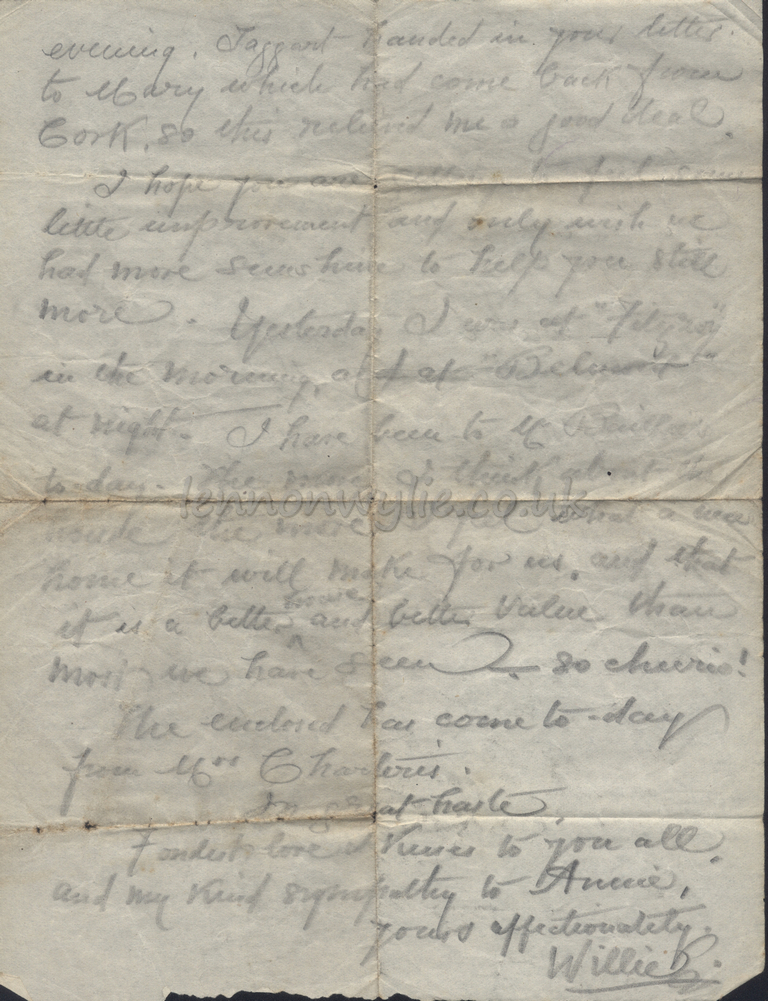 evening. Taggart handed in your letter
to Mary which had come back from
Cork, so this relieved me a good deal.
I hope you are getting to feel some
little improvement and only wish we
had more sunshine to help you still
more. Yesterday I was at "Fitzroy"
in the morning, and at "Belmont"
at night. I have been to
to-day. The more I think about the
house the more what a nice
home it will make for us, and that
it is a better house and better value than
most we have seen — so cheerio!
The enclosed has come to-day
from Mrs Charteris.
In great haste,
Fondest love & kisses to you all,
and my kind sympathy to Annie,
yours affectionately.
Willie
lennonwylie.co.uk